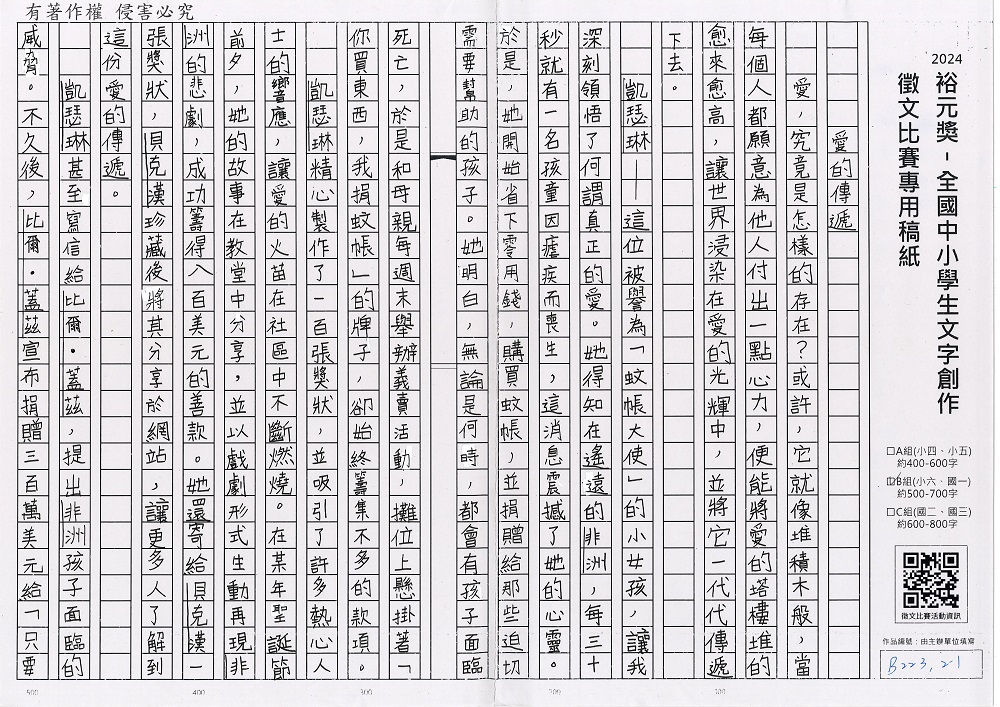 有著作權 侵害必究
2024
裕元獎-全國中小學生文字創作
徵文比賽專用稿紙
□A組(小四、小五)
約400-600字
☑B組(小六、國一)
約500-700字
□C組(國二、國三)
約600-800字
徵文比賽活動資訊
作品編號：由主辦單位填寫
B223, 21
愛的傳遞
愛，究竟是怎樣的存在？或許，它就像堆積木般，當
每個人都願意為他人付出一點心力，便能將愛的塔樓堆的
愈來愈高，讓世界浸染在愛的光輝中，並將它一代代傳遞
下去。
凱瑟琳——這位被譽為「蚊帳大使」的小女孩，讓我
深刻領悟了何謂真正的愛。她得知在遙遠的非洲，每三十
秒就有一名孩童因瘧疾而喪生，這消息震撼了她的心靈。
於是，她開始省下零用錢，購買蚊帳，並捐贈給那些迫切
需要幫助的孩子。她明白，無論是何時，都會有孩子面臨
死亡，於是和母親每週末舉辦義賣活動，攤位上懸掛著「
你買東西，我捐蚊帳」的牌子，卻始終籌集不多的款項。
凱瑟琳精心製作了一百張獎狀，並吸引了許多熱心人
士的響應，讓愛的火苗在社區中不斷燃燒。在某年聖誕節
前夕，她的故事在教堂中分享，並以戲劇形式生動再現非
洲的悲劇，成功籌得八百美元的善款。她還寄給貝克漢一
張獎狀，貝克漢珍藏後將其分享於網站，讓更多人了解到
這份愛的傳遞。
凱瑟琳甚至寫信給比爾．蓋茲，提出非洲孩子面臨的
威脅。不久後，比爾．蓋茲宣布捐贈三百萬美元給「只要
500
400
300
200
100